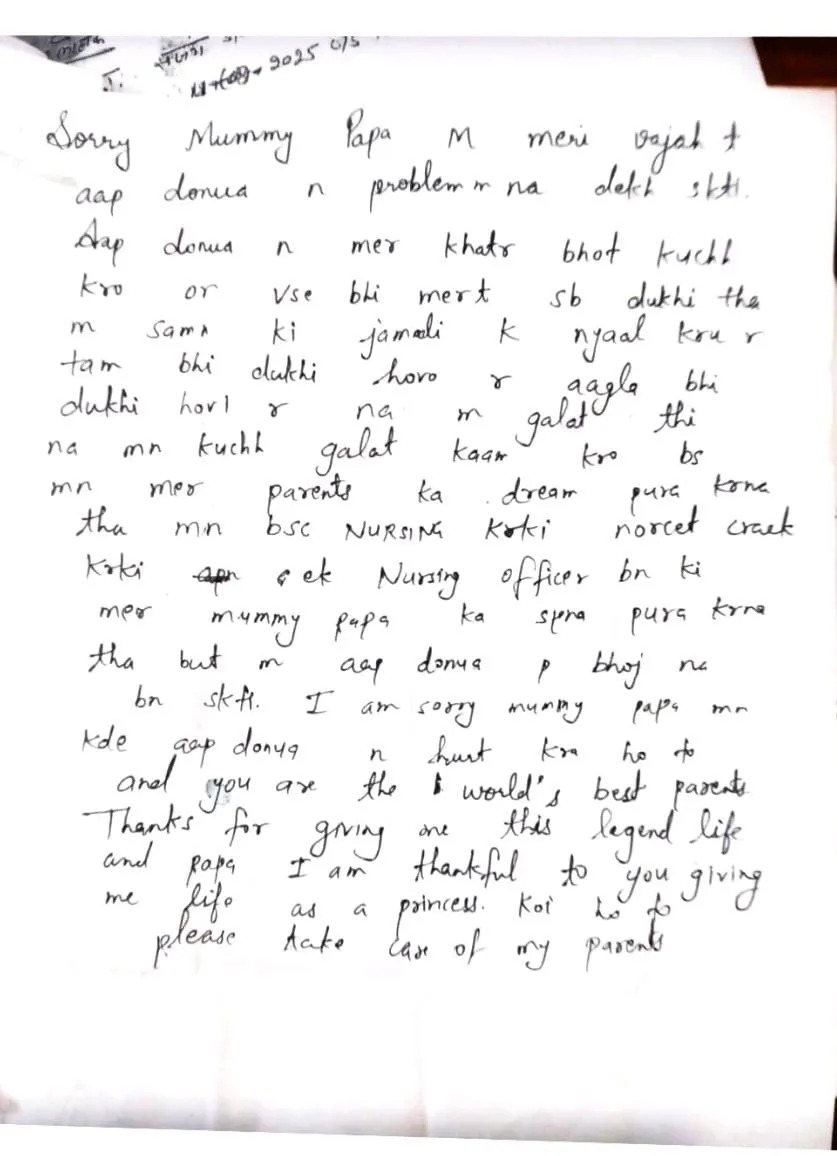 2025
Sorry Mummy Papa M meri vajah t
aap donua n problem m na dekh skti.
Aap donua n mer khatr bhot kuchh
kro or vse bhi mert sb dukhi the
m sama ki jamali k nyaal kru r
tam bhi dukhi hovo r aagla bhi
dukhi hovl r na m galat thi
na mn kuchh galat kaam kro bs
mn mer parents ka dream pura krna
tha mn bsc NURSING krki norcet crack
krki ek Nursing officer bn ki
mer mummy papa ka spna pura krna
tha but m aap donua p bhoj na
bn skti. I am sorry mummy papa mn
kde aap donya n hurt kra ho to
and you are the world's best parents
Thanks for giving me this legend life
and papa I am thankful to you giving
me life as a princess. Koi ho to
please take care of my parents